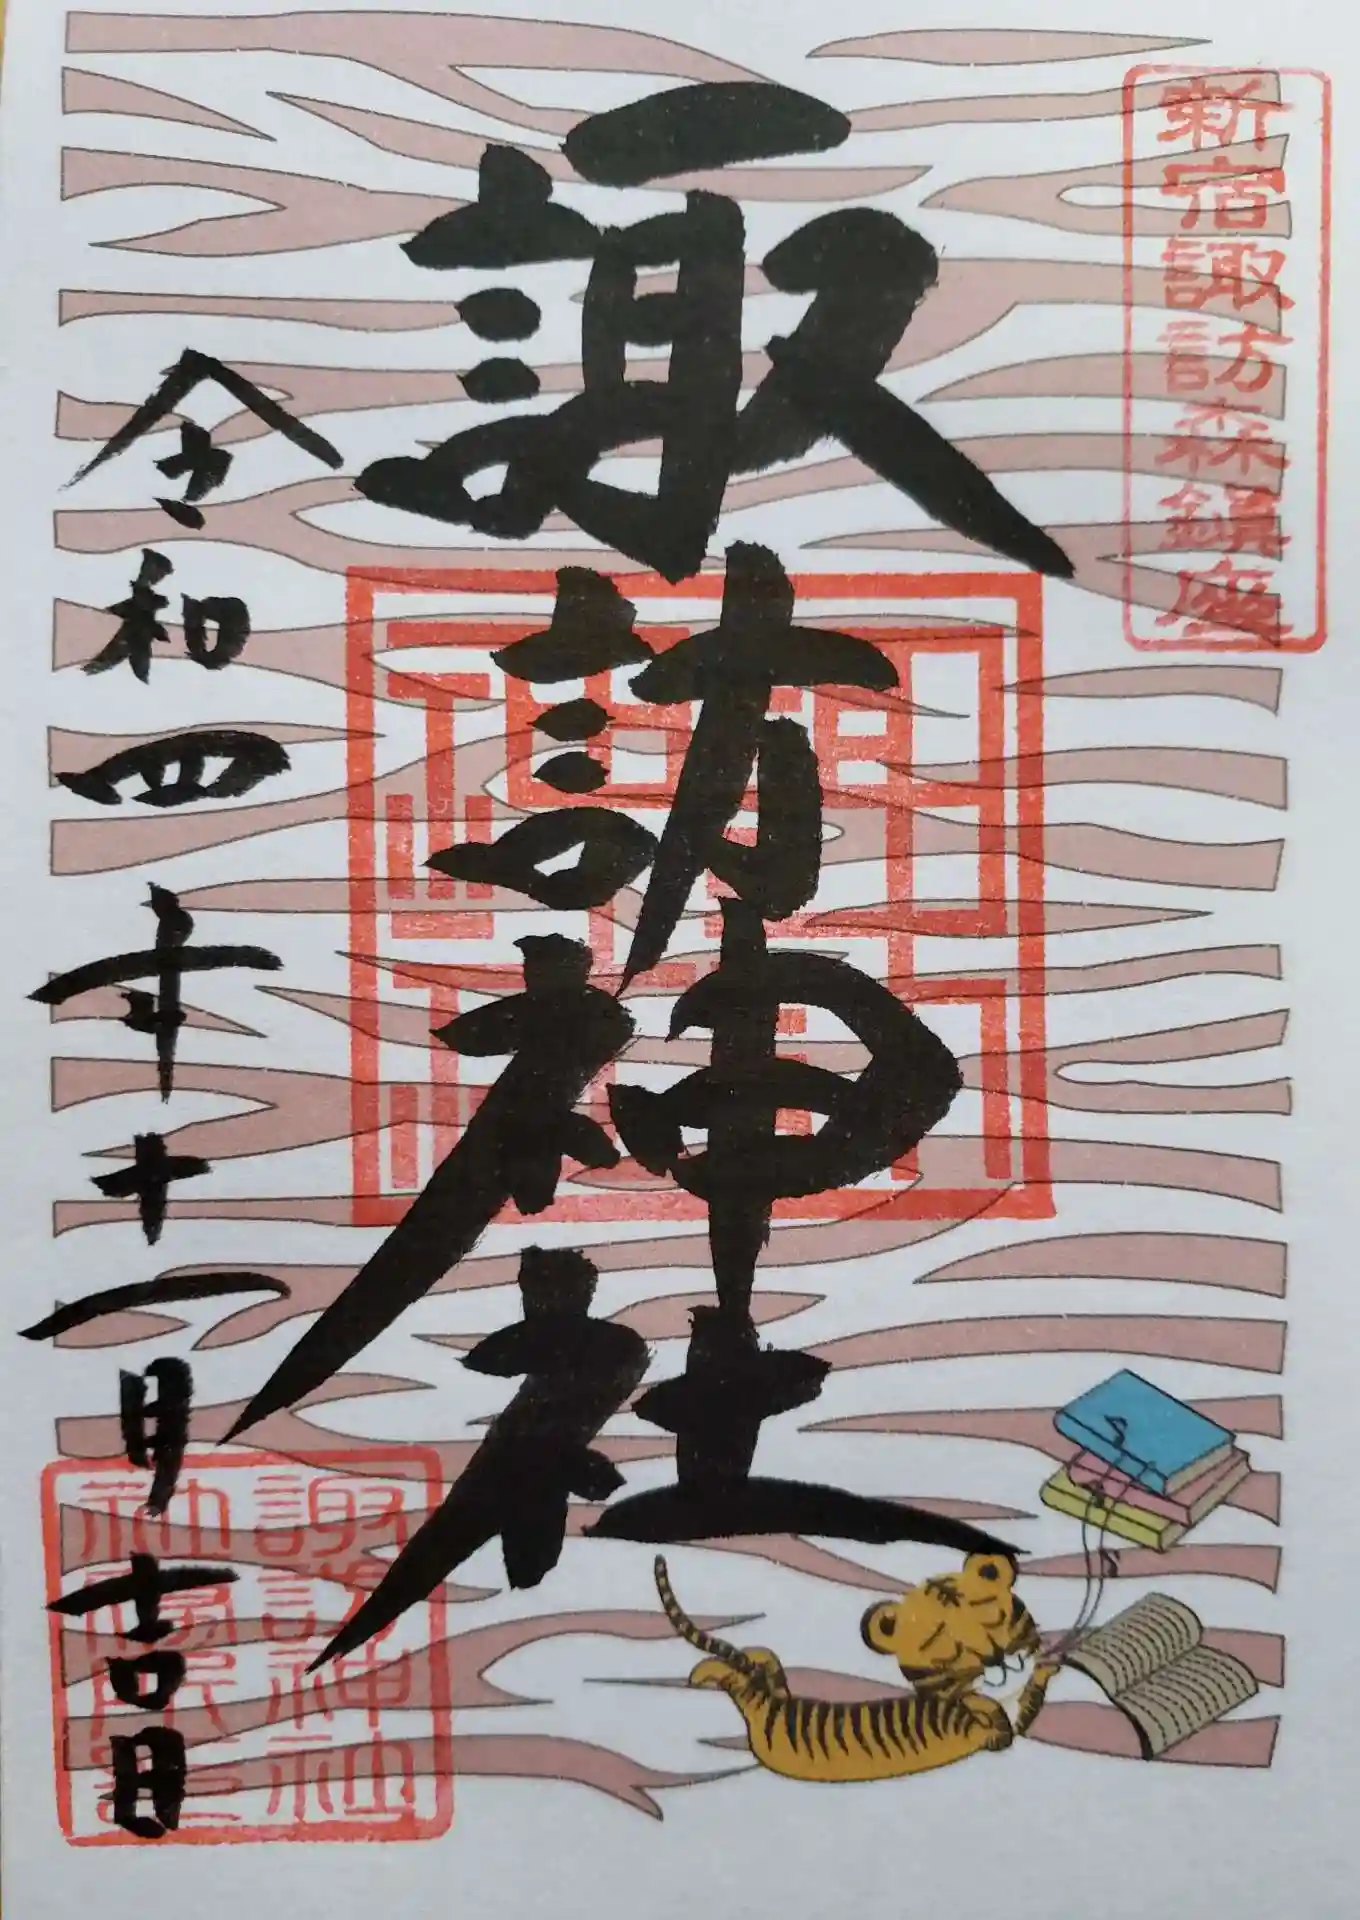 新宿諏訪森鎮座
諏訪神社
令和四年十一月吉日
諏訪神社